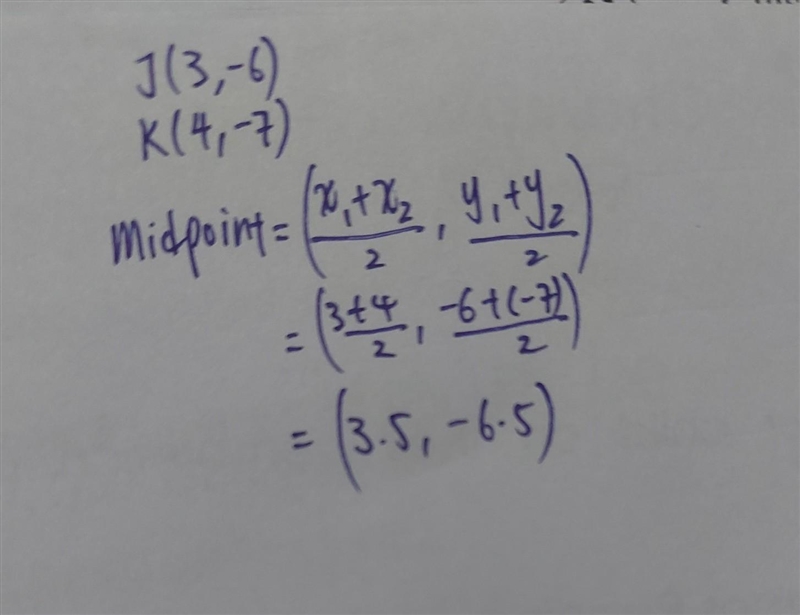 J(3,-6)
K(4,-7)
Midpoint = (x₁+x₂/2, y₁+y₂/2)
= (3+4/2, -6+(-7)/2)
= (3.5, -6.5)